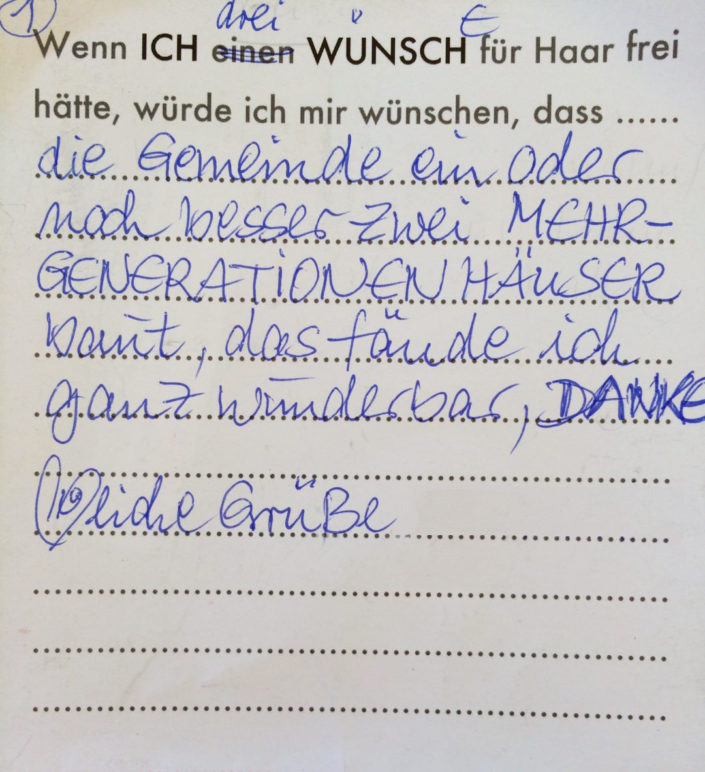 1
Wenn ICH einen drei WÜNSCHE für Haar frei
hätte, würde ich mir wünschen, dass ......
die Gemeinde ein oder
noch besser zwei MEHR-
GENERATIONENHÄUSER
baut, das fände ich
ganz wunderbar, DANKE
liche Grüße